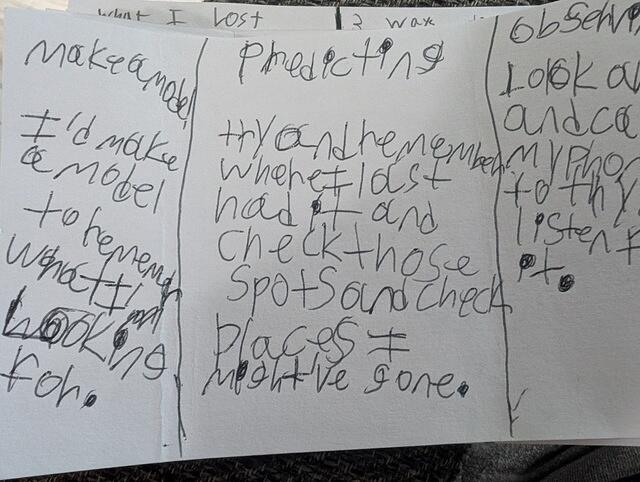 What I lost
3 wax
Make a model
I'd make
a model
to rememb
what I'm
looking
for.
Predicting
try and remember
where I last
had it and
check those
spots and check
places I
might've gone.
Observi
Look a
and ca
my pho
to try
listen f
it.